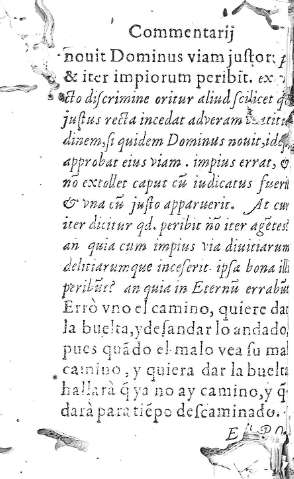 Commentarij
nouit Dominus viam justor:
& iter impiorum peribit. ex
cto discrimine oritur aliud scilicet
justus recta incedat adveram
dinem, si quidem Dominus nouit, ides
approbat eius viam. impius errat, &
nō extollet caput cū iudicatus fueri
& vna cū justo apparuerit. At cur
iter dicitur qd. peribit nō iter agētes?
an quia cum impius via diuitiarum
delitiarumque incesserit ipsa bona illi
peribūt? an quia in Eternū errabūt
Errò vno el camino, quiere dar
la buelta, y desandar lo andado,
pues quādo el malo vea su mal
camino, y quiera dar la buelta
hallarà q̃ ya no ay camino, y q̃
darà para tiēpo descaminado.